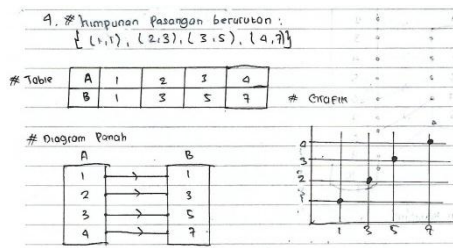 4. * himpunan Pasangan berurutan :
{ (1,1), (2,3), (3,5), (4,7)}
* Table
A 1 2 3 4
B 1 3 5 7
# Grafik
# Diagram Panah
A B
1 1
2 3
3 5
4 7
4
3
2
1
1 3 5 7